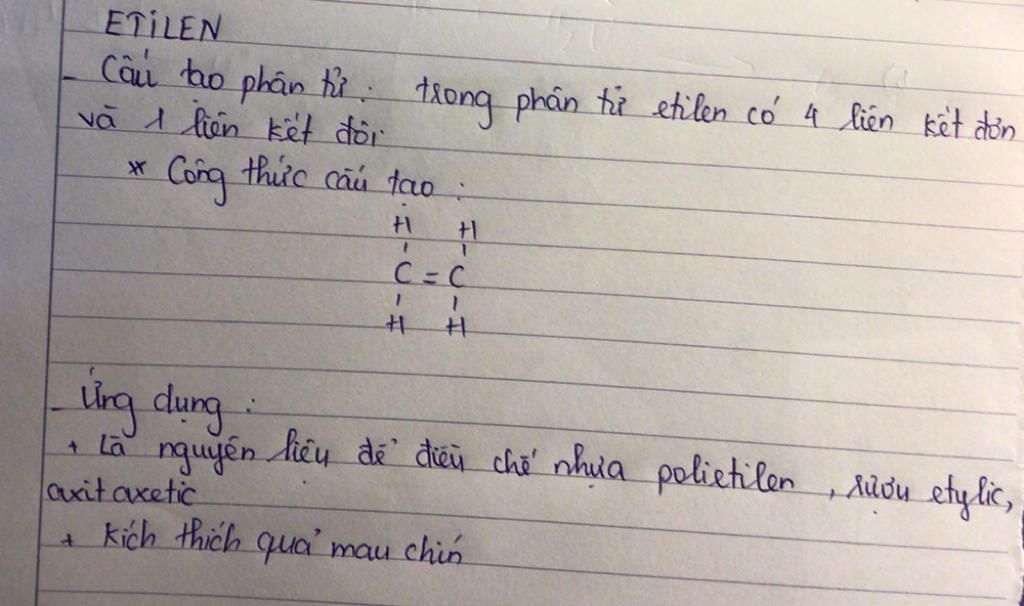 ETILEN
- Cấu tạo phân tử: trong phân tử etilen có 4 liên kết đơn
và 1 liên kết đôi
* Công thức cấu tạo:
H H
C = C
H H
- Ứng dụng:
+ Là nguyên liệu để điều chế nhựa polietilen, rượu etylic,
axit axetic
+ Kích thích quả mau chín